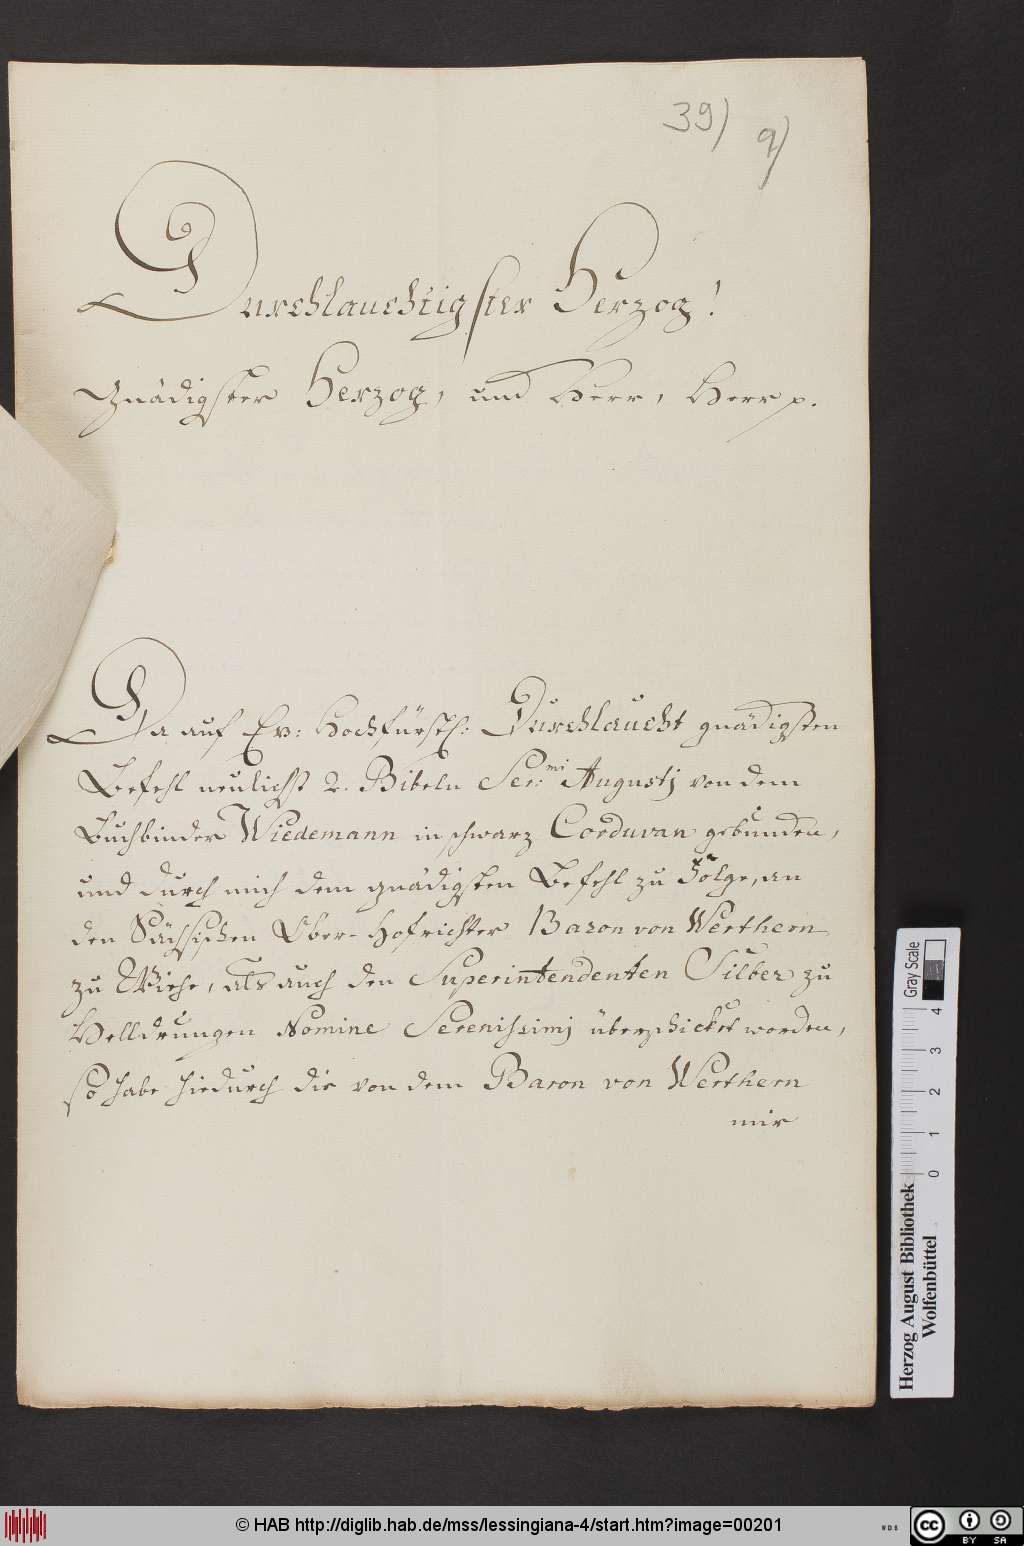 39)
9)
Durchlauchtigster Herzog!
Gnädigster Herzog, und Herr, Herr p.
Da auf Ew: Hochfürstl: Durchlaucht gnädigsten
Befehl neulichst 2. Bibeln Ser:mi Augustj von dem
Buchbinder Wiedemann in schwarz Corduvan gebunden,
und durch mich dem gnädigsten Befehl zu Folge, an
den Sächsischen Ober-Hofrichter Baron von Werthern
zu Wiehe, als auch den Superintendenten Silber zu
Helldrungen Nomine Serenissimj überschicket worden,
so habe hiedurch die von dem Baron von Werthern
mir
Herzog August Bibliothek
Wolfenbüttel
Gray Scale
0 1 2 3 4
© HAB http://diglib.hab.de/mss/lessingiana-4/start.htm?image=00201
WDB
cc BY SA